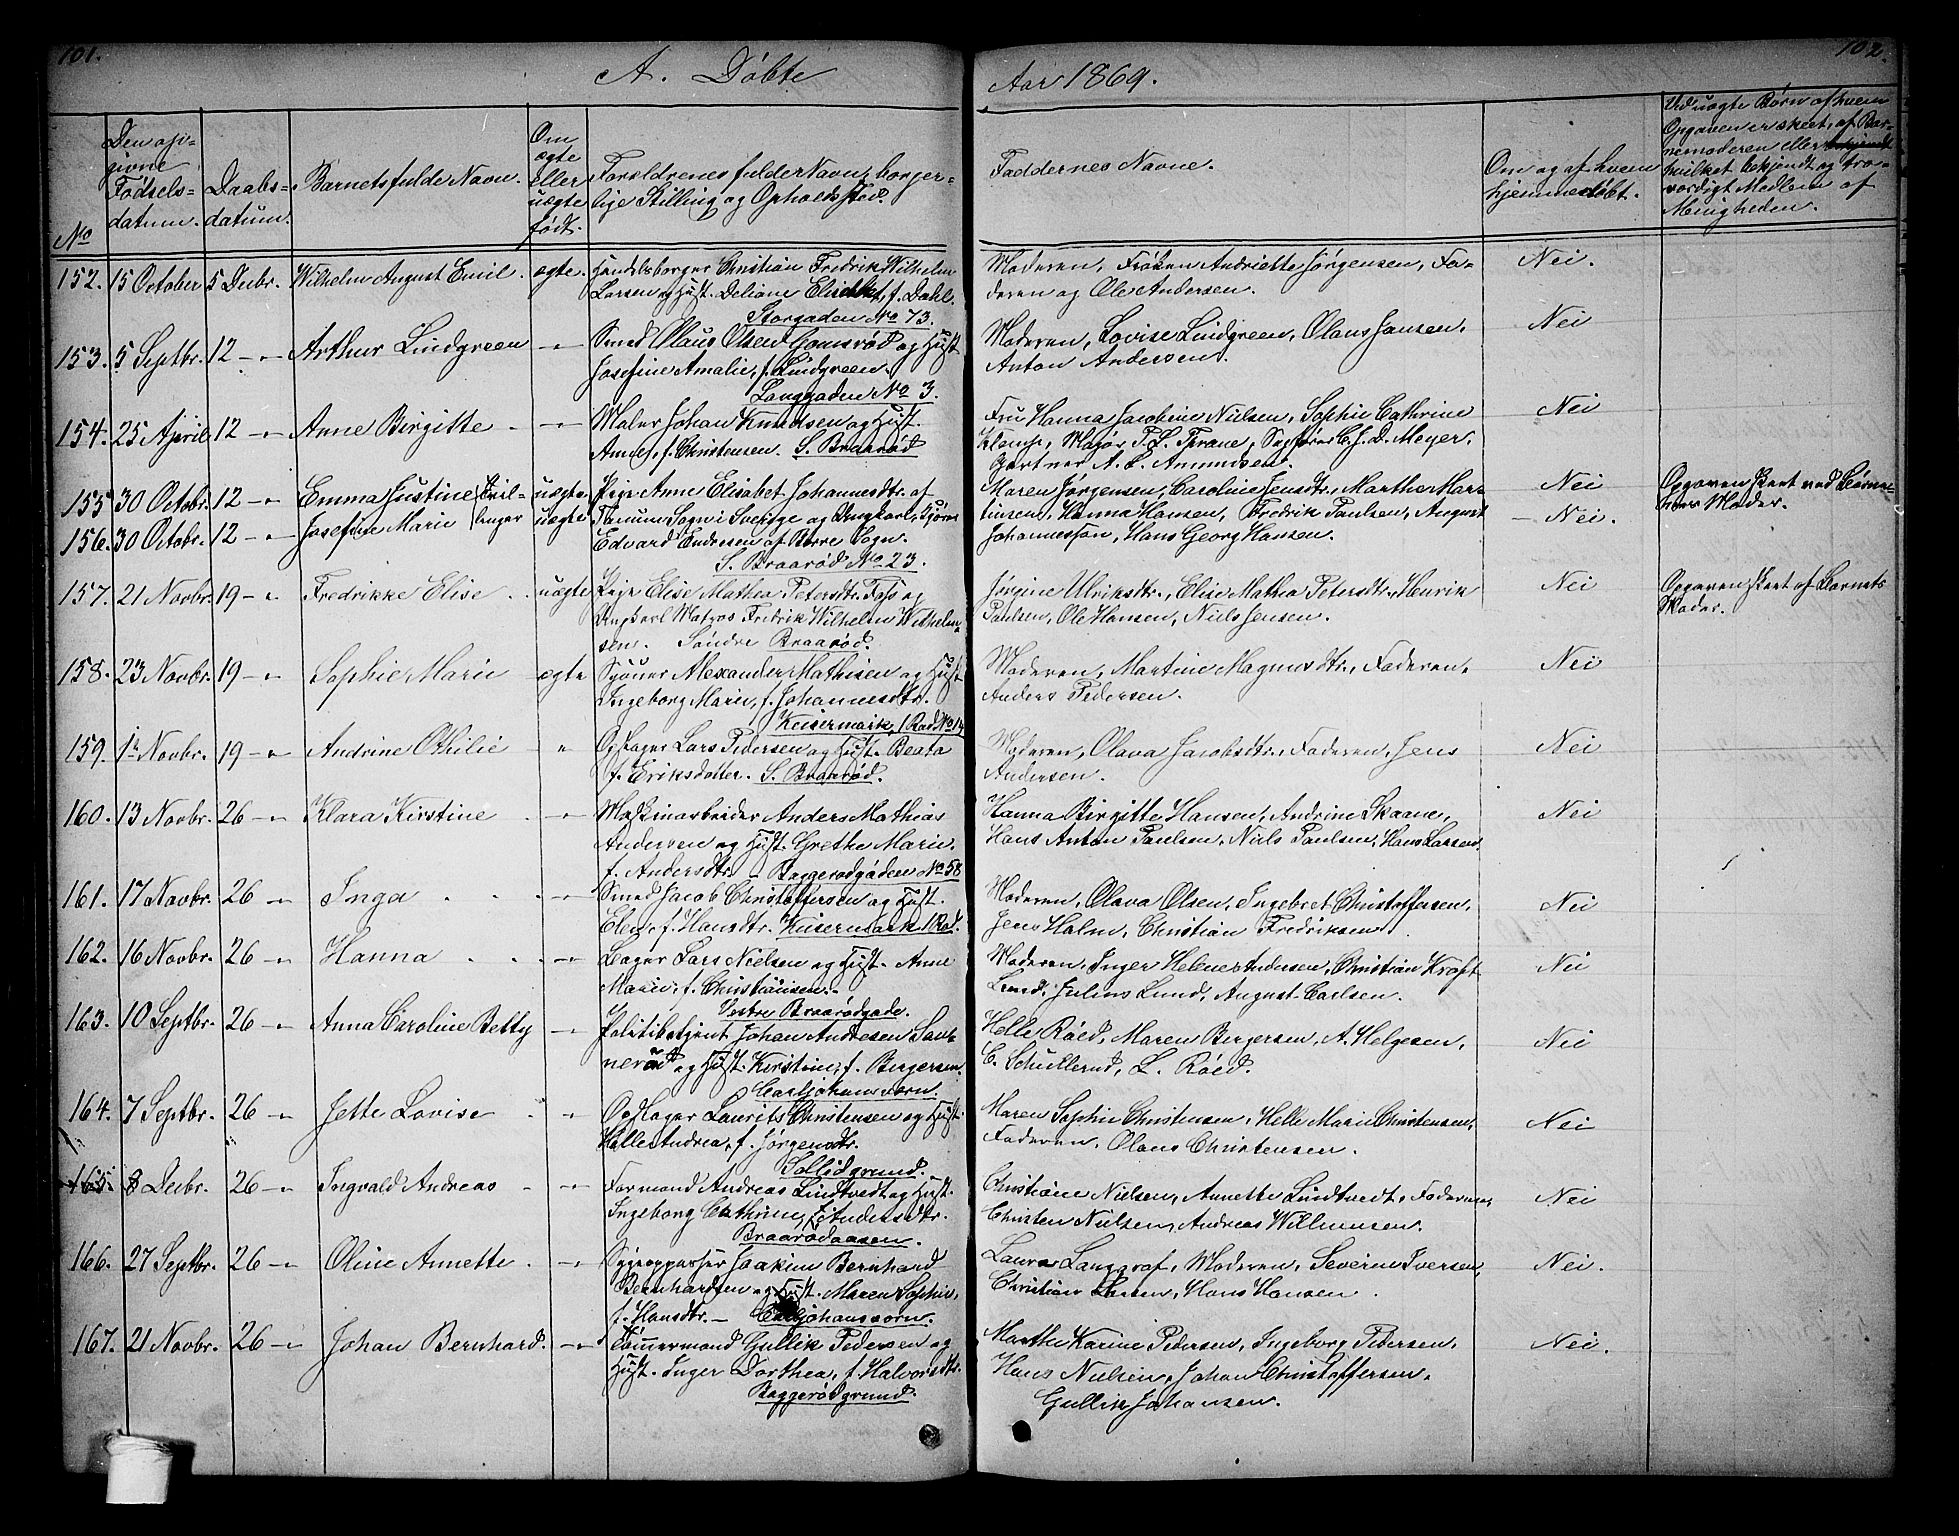 101.
A. Døbte
Aar 1869.
102.
No
Den op-
givne
Fødsels-
datum.
Daabs-
datum.
Barnets fulde Navn.
Om
ægte
eller
uægte
født.
Forældrenes fulde Navn, borger-
lige Stilling og Opholdssted.
Faddernes Navne.
Om og af hvem
hjemmedøbt.
Ved uægte Børn af hvem
Opgaven er skeet, af Bar-
nemoderen eller
hvilket bekjendt og tro-
værdigt Medlem af
Menigheden.
152. 15 October 5 Decbr. Wilhelm August Emil. ægte. Handelsborger Christian Fredrik Wilhelm
Larsen og Hust. Deliane Elisabet, f. Dahl.
Storgaden No 73.
Moderen, Frøken Andriette Jørgensen, Fa-
deren og Ole Andersen.
Nei.
153. 5 Septbr. 12 -"- Arthur Lindgreen -"- Smed Olaus Olsen Gomsrød og Hust
Josefine Amalie, f. Lindgreen.
Langgaden No 3.
Moderen, Lovise Lindgreen, Olaus Jansen,
Anton Andersen.
Nei
154. 25 April 12 -"- Anne Birgitte -"- Maler Johan Knudsen og Hust.
Anne, f. Christensen. S. Braarød
Fru Hanna Jacobine Nielsen, Sophie Cathrine
Klemp, Major P. L. Thrane, Sagfører C. J. D. Meyer,
Gartner A. L. Amundsen.
Nei
155 30 Octobr. 12 -"- Emma Justine } Tvil- uægte. Pige Anne Elisabet Johannesdtr. af
156. 30 Octobr. 12 -"- Josefine Marie } linger uægte Tanum Sogn i Sverige og Ungkarl,
Edvard Andresen af Borre Sogn.
S. Braarød No 23.
Maren Jørgensen, Caroline Jensdtr., Marthe Mar-
tinsen, Hanna Hansen, Fredrik Paulsen, August
Johannesson, Hans Georg Hansen.
Nei
- Nei.
Opgaven skeet ved Børne-
nes Moder.
157. 21 Novbr. 19 -"- Fredrikke Elise uægte Pige Elise Mathea Petersdtr. og
Ungkarl Matros Fredrik Wilhelm Wilhelm-
sen. Søndre Braarød.
Jørgine Ulriksdtr., Elise Mathea Petersdtr., Henrik
Paulsen, Ole Hansen, Niels Jensen.
Nei
Opgaven skeet af Barnets
Moder.
158. 23 Novbr. 19 -"- Sophie Marie ægte Skjøner Alexander Mathisen og Hust
Ingeborg Marie, f. Johannesdtr.
Keisermark, 1 Rad No 14
Moderen, Martine Magnusdtr., Faderen,
Anders Pedersen.
Nei
159. 1ste Novbr. 19 -"- Andrine Othilie " Opsøger Lars Pedersen og Hust. Beata
f. Eriksdatter. S. Braarød.
Moderen, Olava Jacobsdtr., Faderen, Jens
Andersen.
Nei
160. 13 Novbr. 26 -"- Klara Kirstine -"- Maskinarbeider Anders Mathias
Andersen og Hust. Grethe Marie,
f. Andersdtr. - Baggerødgaden No 58
Hanna Birgitte Hansen, Andrine Skaane,
Hans Anton Paulsen, Niels Paulsen, Hans Larsen.
Nei
161. 17 Novbr. 26 -"- Inga -"- Smed Jacob Christoffersen og Hust.
Elen, f. Hansdtr. Keisermark 1 Rad.
Moderen, Olava Olsen, Ingebret Christoffersen,
Jens Holm, Christian Fredriksen.
Nei
162. 16 Novbr. 26 -"- Hanna -"- Bager Lars Nielsen og Hust. Anne
Marie, f. Christiansen.-
Vestre Braarødgade.
Moderen, Inger Helene Andersen, Christian Kraft
Lund, Julius Lund, August Carlsen.
Nei
163. 10 Septbr. 26 -"- Anna Caroline Betty -"- Politibetjent Johan Andresen Sau-
nerød og Hust. Kirstine, f. Bergersen.
Carljohansværn.
Helle Røed, Maren Bergersen, A. Helgesen,
C. Schullerud, L. Røed.
Nei
164. 7 Septbr. 26 -"- Jette Lovise -"- Opsøger Laurits Christensen og Hust.
Helle Andrea, f. Jørgensdtr.
Sollidgrund.
Maren Sophie Christensen, Helle Marie Christensen,
Faderen, Olaus Christensen.
Nei
165. 8 Decbr. 26 -"- Ingvald Andreas -"- Formand Andreas Lindtvedt og Hust.
Ingeborg Cathrine, f. Andersdtr.
Braarødaasen.
Christiane Nielsen, Annette Lindtvedt, Faderen,
Christen Nielsen, Andreas Willumsen.
Nei
166. 27 Septbr. 26 -"- Oline Annette -"- Sygeopasser Joakim Bernhard
Bernhardsen og Hust. Maren Sophie,
f. Hansdtr. - Carljohansværn.
Laura Langgraf, Moderen, Severine Iversen,
Christian Larsen, Hans Hansen.
Nei.
167. 21 Novbr. 26 -"- Johan Bernhard. -"- Tømmermand Gullik Pedersen og
Hust. Inger Dorthea, f. Halvorsdtr.
Baggerødgrund.
Marthe Karine Pedersen, Ingeborg Pedersen,
Hans Nielsen, Johan Christoffersen,
Gullik Johansen.
Nei.